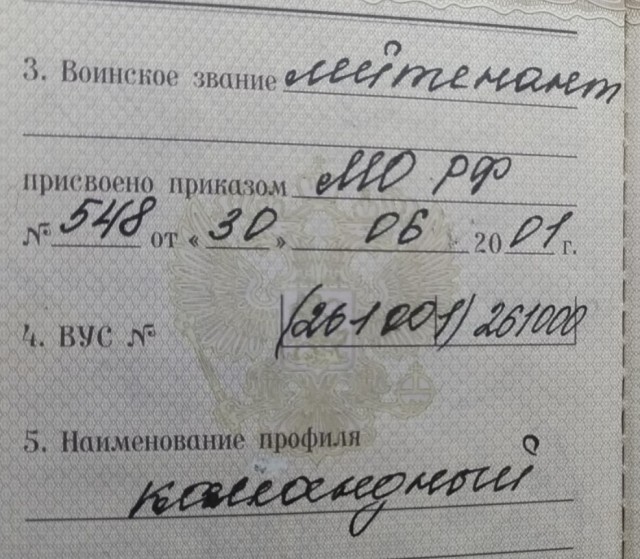 3. Воинское звание лейтенант
присвоено приказом МО РФ
№ 548 от «30» 06 2001 г.
4. ВУС № (261001) 261000
5. Наименование профиля
командный